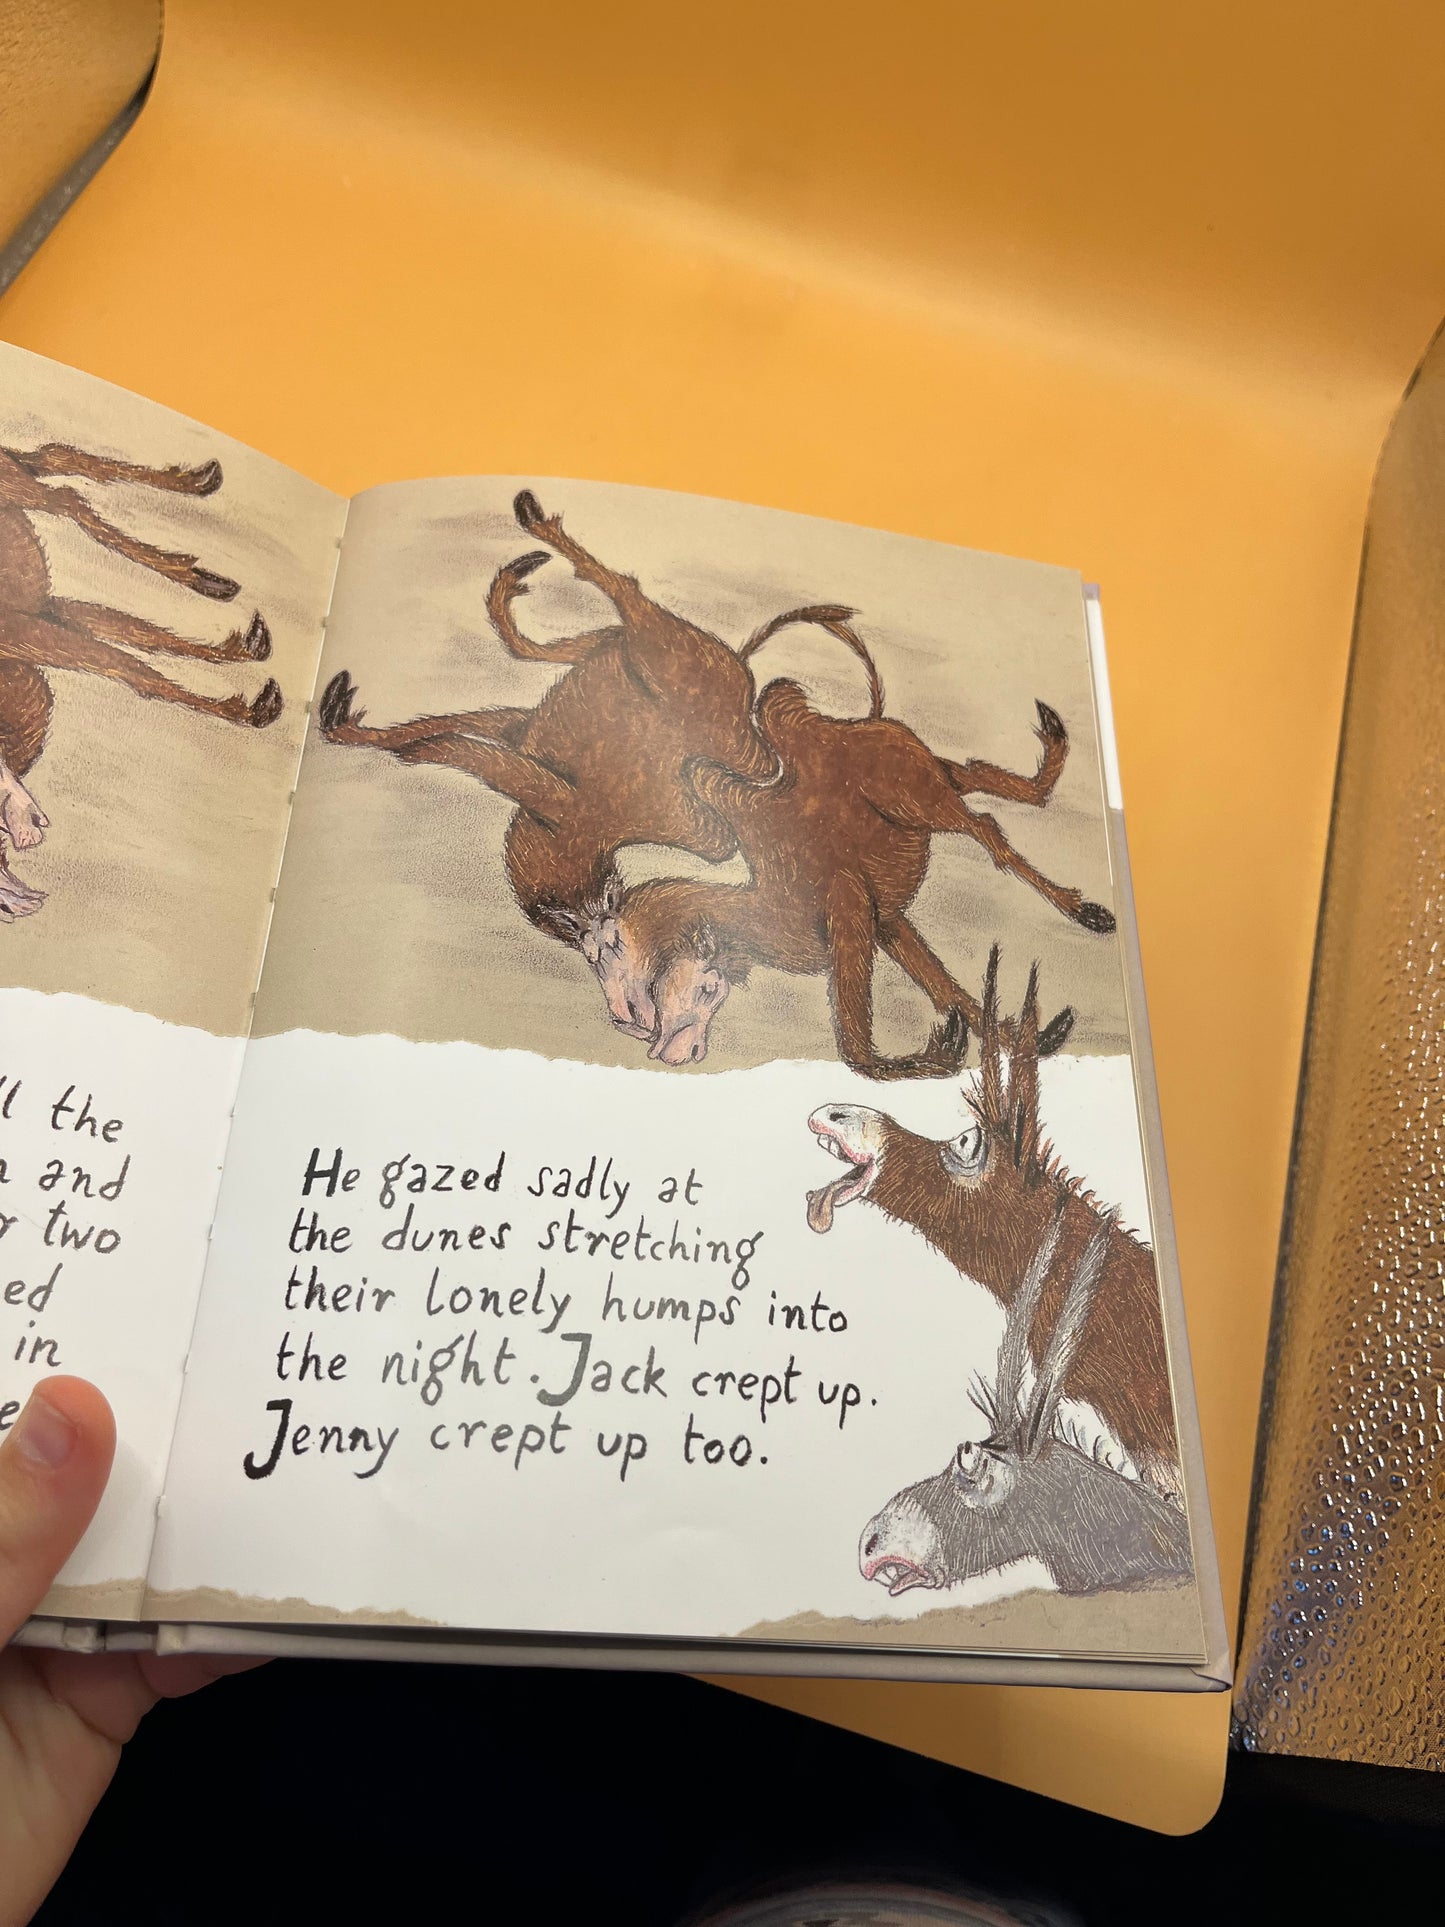 the
and
two
ed
in
He gazed sadly at
the dunes stretching
their lonely humps into
the night. Jack crept up.
Jenny crept up too.